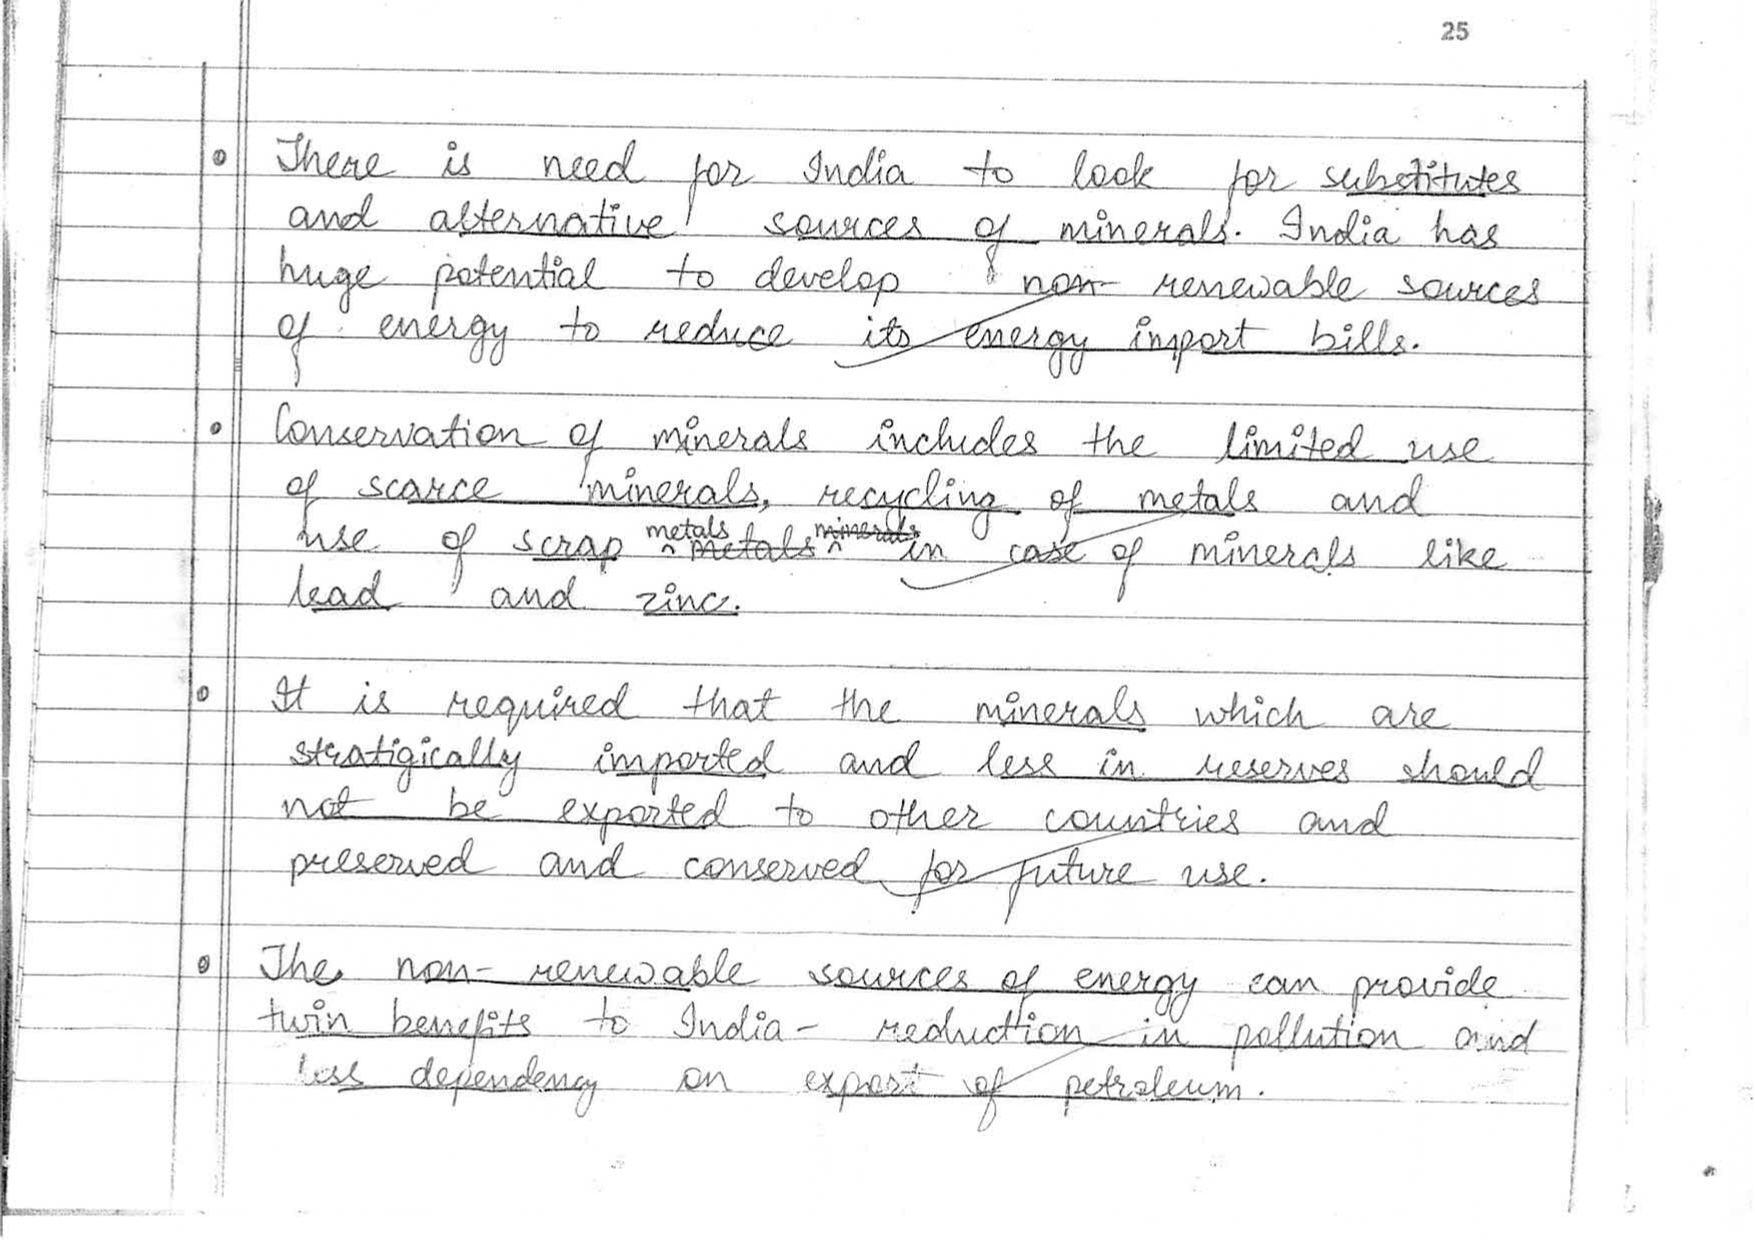 25
There is need for India to look for substitutes
and alternative sources of minerals. India has
huge potential to develop non- renewable sources
of energy to reduce its energy import bills.
Conservation of minerals includes the limited use
of scarce minerals, recycling of metals and
use of scrap metals metals minerals in case of minerals like
lead and zinc.
It is required that the minerals which are
stratigically imported and less in reserves should
not be exported to other countries and
preserved and conserved for future use.
The non- renewable sources of energy can provide
twin benefits to India - reduction in pollution and
less dependency on export of petroleum.